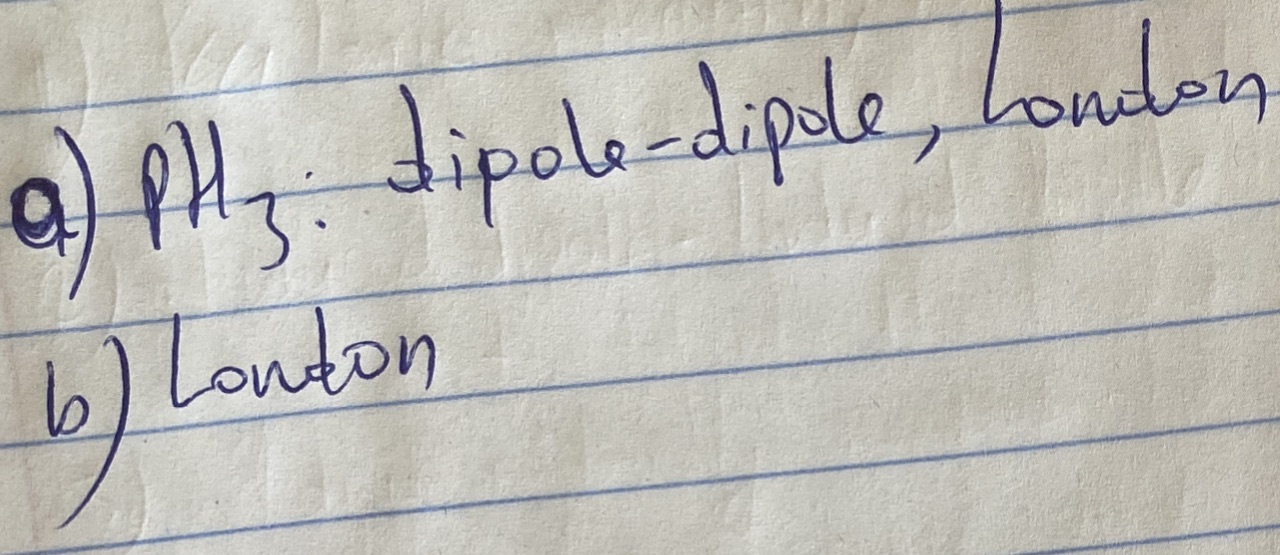 a) PH₃: dipole-dipole, London
b) London